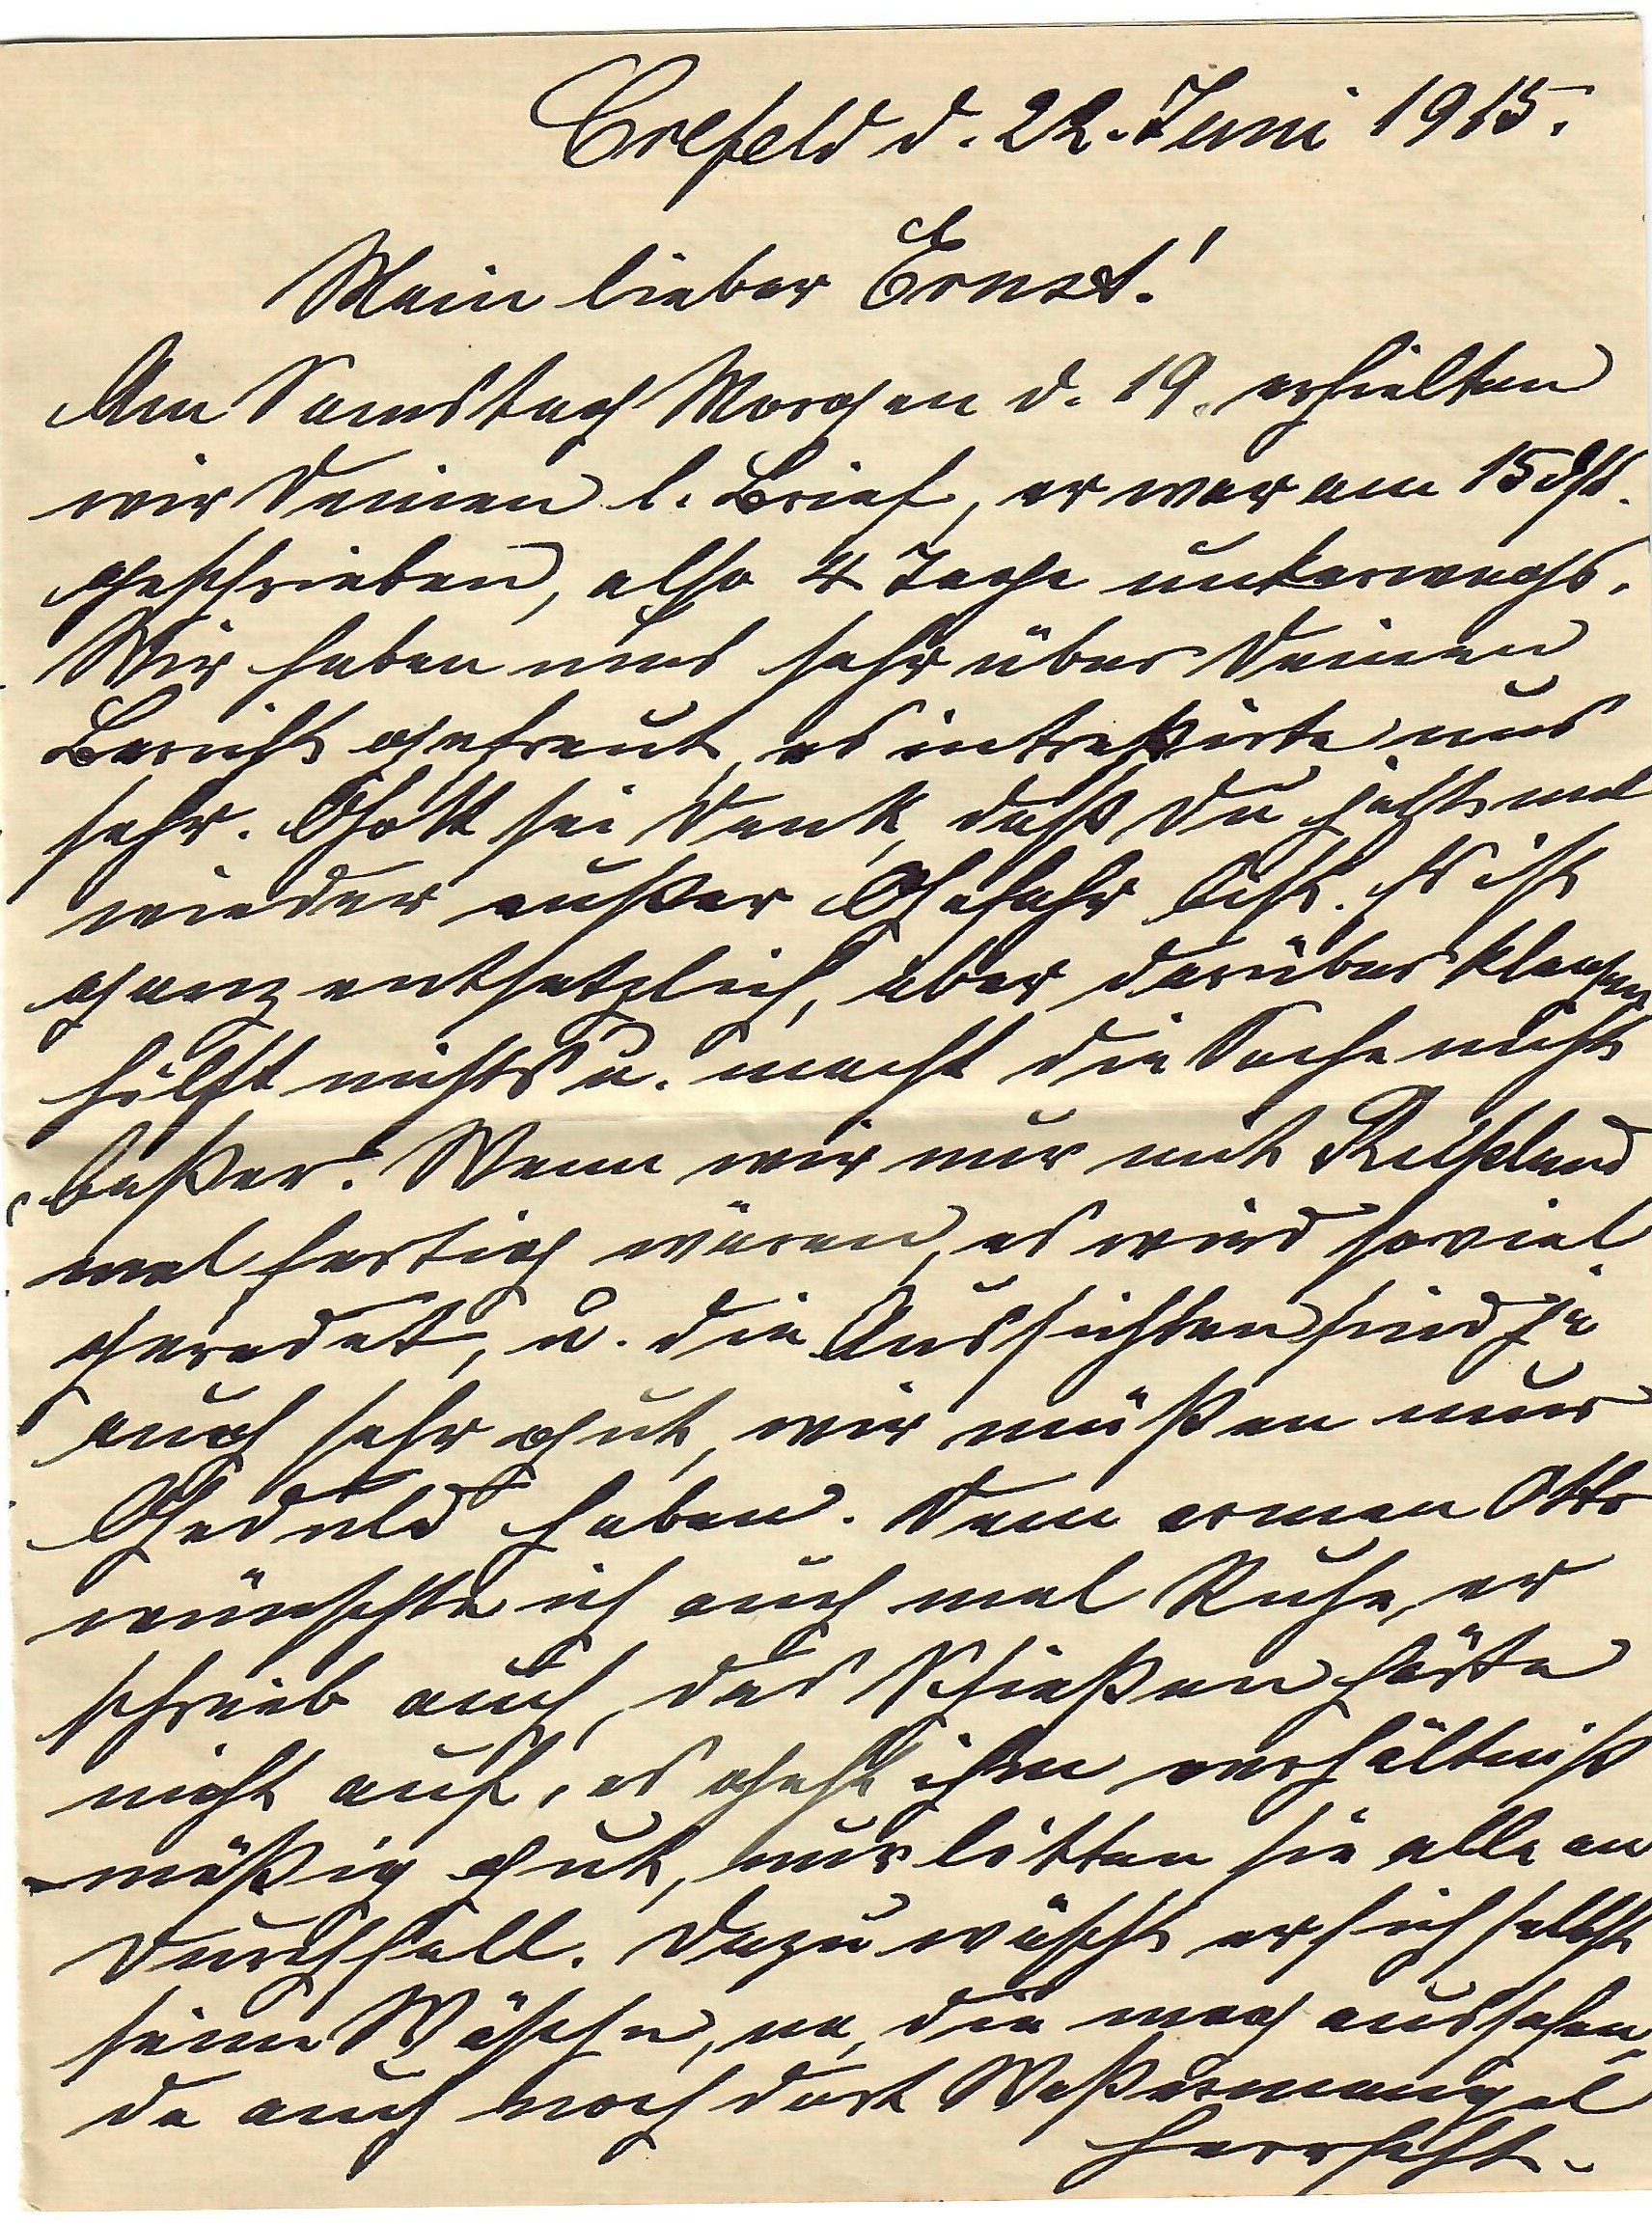 Crefeld d. 22. Juni 1915.
Mein lieber Ernst!
Am Samstag Morgen d. 19. erhielten
wir Deinen l. Brief, er war am 15 dss.
geschrieben, also 4 Tage unterwegs.
Wir haben uns sehr über Deinen
Bericht gefreut, es intreßirte uns
sehr. Gott sei Dank, daß Du jetzt mal
wieder außer Gefahr bist. Es ist
ganz entsetzlich, aber darüber klagen
hilft nichts u. macht die Sache nicht
beßer. Wenn wir nur mit Rußland
mal fertig wären, es wird soviel
geredet, u. die Aussichten sind ja
auch sehr gut, wir müßen nur
Geduld haben. Dem armen Otto
wünschte ich auch mal Ruhe, er
schrieb auch, das Schießen hörte
nicht auf, es geht ihm verhältniß
mäßig gut, nur litten sie alle an
Durchfall. Dazu wäscht er sich selbst
seine Wäsche, na, die mag aussehen,
da auch noch dort Waßermangel
herrscht.